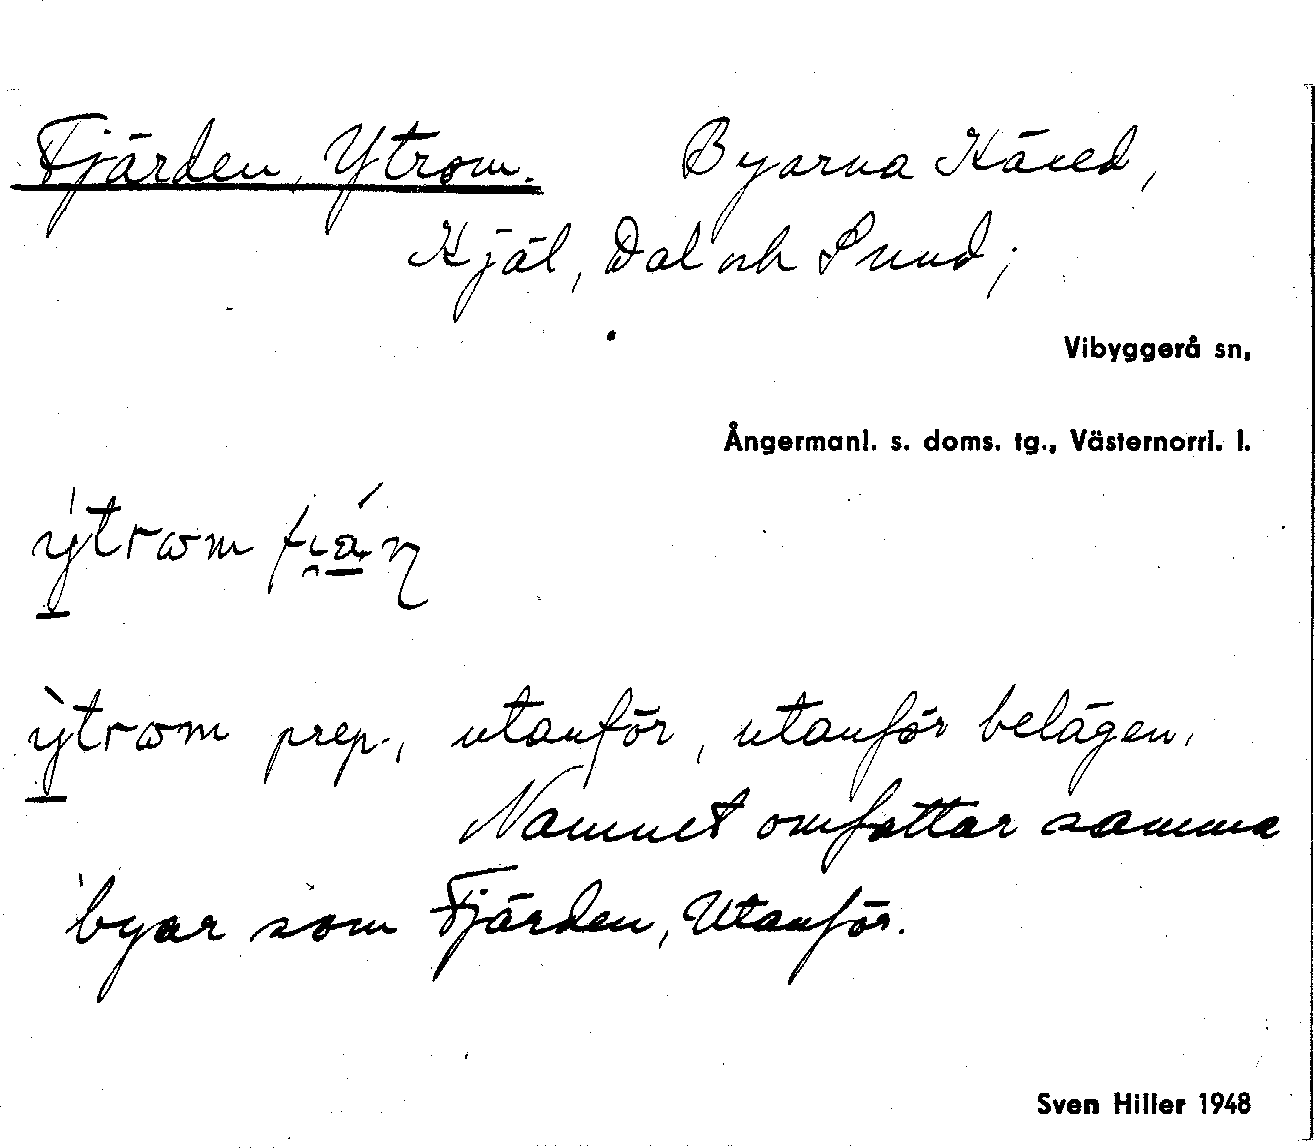 Fjärden, Ytrom. Byarna Käxed,
Kjäl, Dal och Sund;
Vibyggerå sn,
Ångermanl. s. doms. tg., Västernorrl. l.
ýtrωm
ỳtrωm prep., utanför, utanför belägen,
Namnet omfattar samma
byar som Fjärden, Utanför.
Sven Hiller 1948